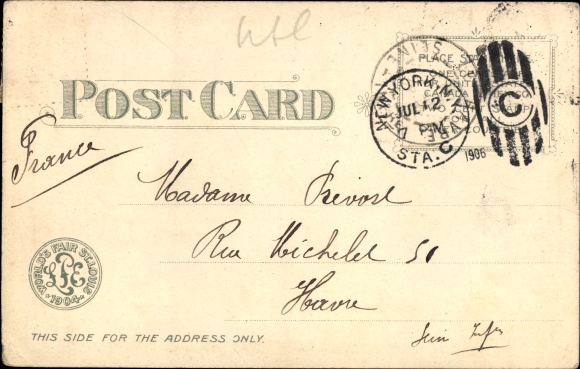 POST CARD
PLACE STA
NEW YORK, N.Y.
JUL 12
PM
STA. C
1906
C
France
Madame Prévost
Rue Michelet 51
Havre
WORLD'S FAIR ST. LOUIS
LPE
1904
THIS SIDE FOR THE ADDRESS ONLY.
Sein Infre